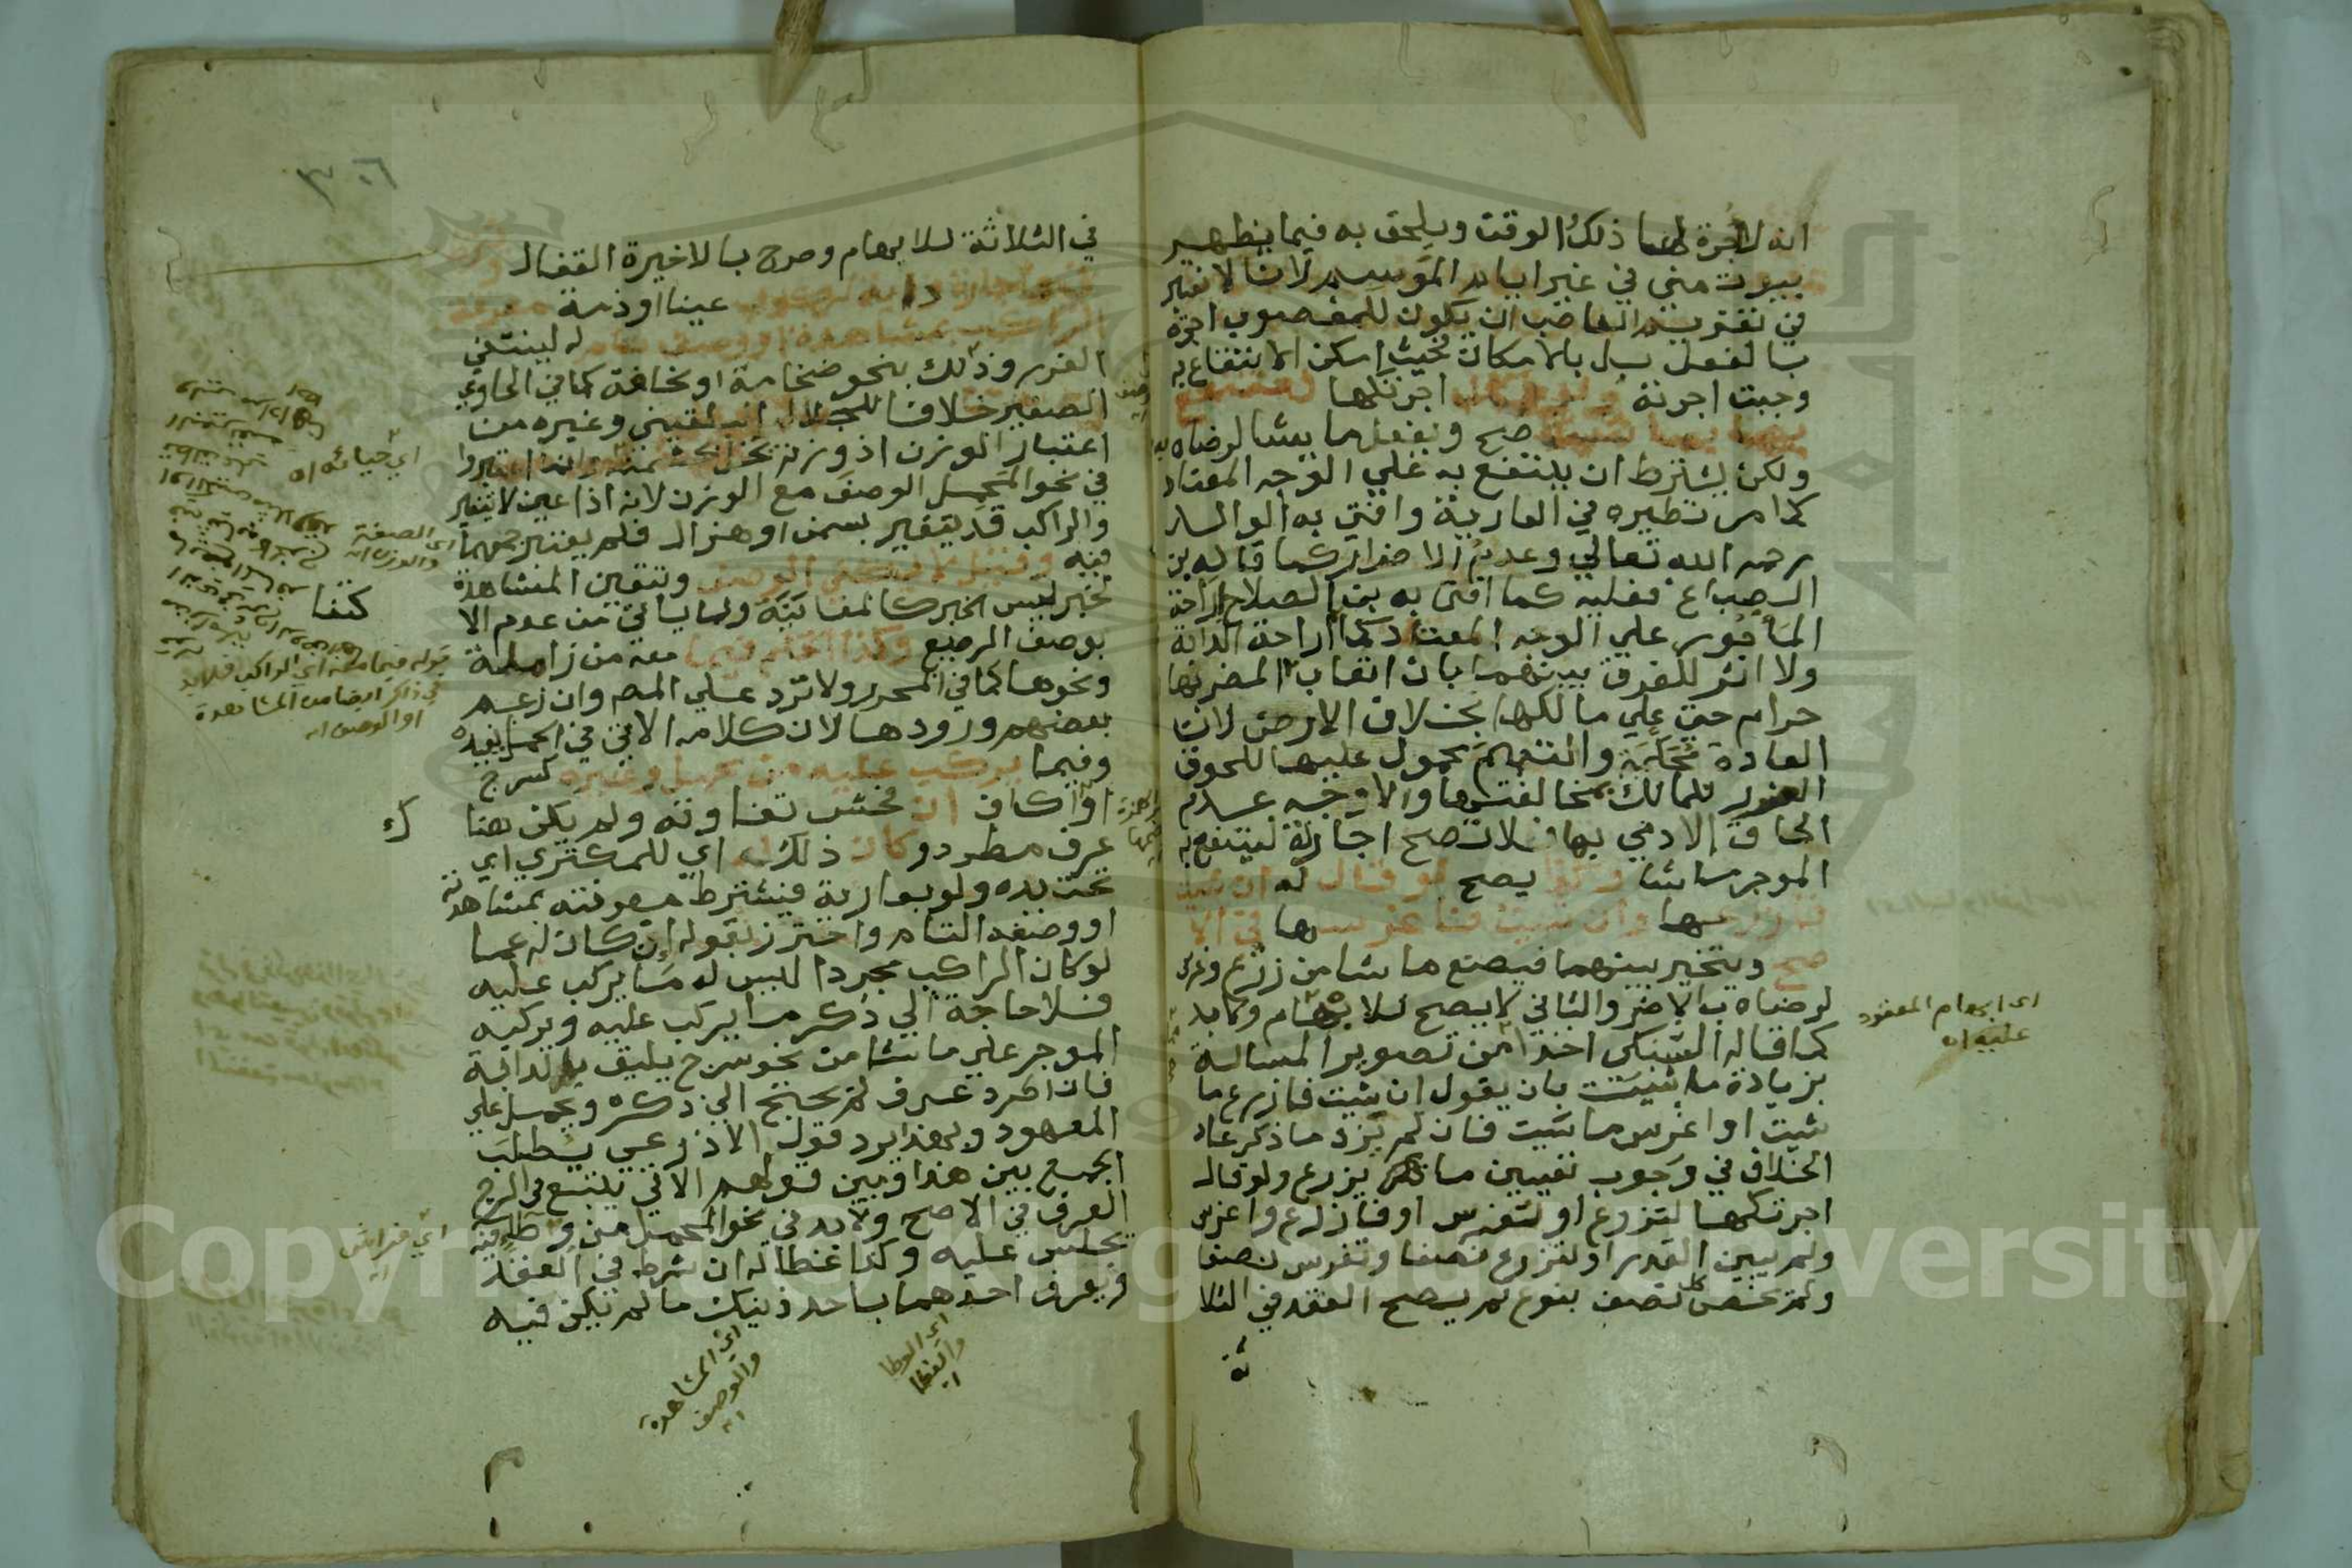 انه لا اجرة لهما ذلك الوقت ويلحق به فيما يظهر
بيوت منى في غير ايام الموسم لانا لا نعتبر
في تغريم الغاصب ان يكون للمغصوب اجرة
بالفعل بل بالامكان فحيث امكن الانتفاع به
وجبت اجرته ولو قال اجرتكها لتنتفع
بها بما شئت صح ويفعل ما يشا لرضاه به
ولكن يشترط ان ينتفع به على الوجه المعتاد
كما مر نظيره في العارية وافتى به الوالد
رحمه الله تعالي وعدم الاضرار كما قاله بن
الصباغ فعليه كما افتى به بن الصلاح اراحة
الماجور علي الوجه المعتاد كما اراحة الدابة
ولا اثر للفرق بينهما بان اتعاب المضر بها
حرام حتى على مالكها بخلاف الارض لان
العادة محكمة والتعميم محمول عليها للحوق
الضرر للمالك بمخالفتها والاوجه عدم
الحاق الادمي بها فلا تصح اجارته لينتفع به
الموجر ما شا وكذا يصح لو قال له ان شئت
فازرعها وان شئت فاغرسها في الا
صح ويتخير بينهما فيصنع ما شا من زرع وغرس
لرضاه بالاضر والثاني لا يصح للابهام ولا بد
كما قاله السبكي اخذا من تصوير المسالة
بزيادة ما شئت بان يقول ان شئت فازرع ما
شئت او اغرس ما شئت فان لم يزد ما ذكر عاد
الخلاف في وجوب تعيين ما يزرع ولو قال
اجرتكها لتزرع او لتغرس او فازرع واغرس
ولم يبين القدر او لتزرع نصفا وتغرس نصفا
ولم يخص كل نصف بنوع لم يصح العقد في الثلا
ثة
اى ابهام المعقود
عليه اه
٣٠٦
في الثلاثة للابهام وصرح بالاخيرة القفال
دابة لركوب عينا او ذمة معرفة
الراكب بمشاهدة او وصف تام له لينتفي
الغرر وذلك بنحو ضخامة او نحافة كما في الحاوي
الصغير خلافا للجلال البلقيني وغيره من
اعتبار الوزن اذ وزنه يخل بحشمته وانما اعتبروا
في نحو المحمل الوصف مع الوزن لانه اذا عين لا يتغير
والراكب قد يتغير بسمن او هزال فلم يعتبر جمعهما
فيه وقيل لا يكفي الوصف وتتعين المشاهدة
لخبر ليس الخبر كالمعاينة ولما ياتي من عدم الا
بوصف الرضيع وكذا الحكم فيما معه من زاملة
ونحوها كما في المحرر ولا ترد علي المص وان زعم
بعضهم ورودها لان كلامه الاتي في الحمل يفيده
وفيما يركب عليه من محمل وغيره كسرج
او اكاف ان فحش تفاوته ولم يكن هنا
عرف مطرد وكان ذلك له اي للمكتري اي
تحت يده ولو بعارية فيشترط معرفته بمشاهدته
او وصفه التام واحترز بقوله ان كان له عما
لو كان الراكب مجردا ليس له ما يركب عليه
فلا حاجة الي ذكر ما يركب عليه ويركبه
الموجر علي ما شا من نحو سرج يليق بالدابة
فان اطرد عرف لم يحتج الي ذكره ويحمل علي
المعهود وبهذا يرد قول الاذرعي يطلب
الجمع بين هذا وبين قولهم الاتي يتبع في السرج
العرف في الاصح ولا بد في نحو المحمل من وطا فيه
يجلس عليه وكذا غطا له ان شرط في العقد
ويعرف احدهما باحد ذينك ما لم يكن فيه
اي خيانه اه
اى الصفة
والوزن اه
كتفا
قوله فيما معه اي الراكب فلا بد
في ذكر ايضا من المشاهدة
او الوصف اه
اي فراش
اي المشاهدة
والوصف
اه
اي الوطا
والغطا
اه
Copyright © King Saud University